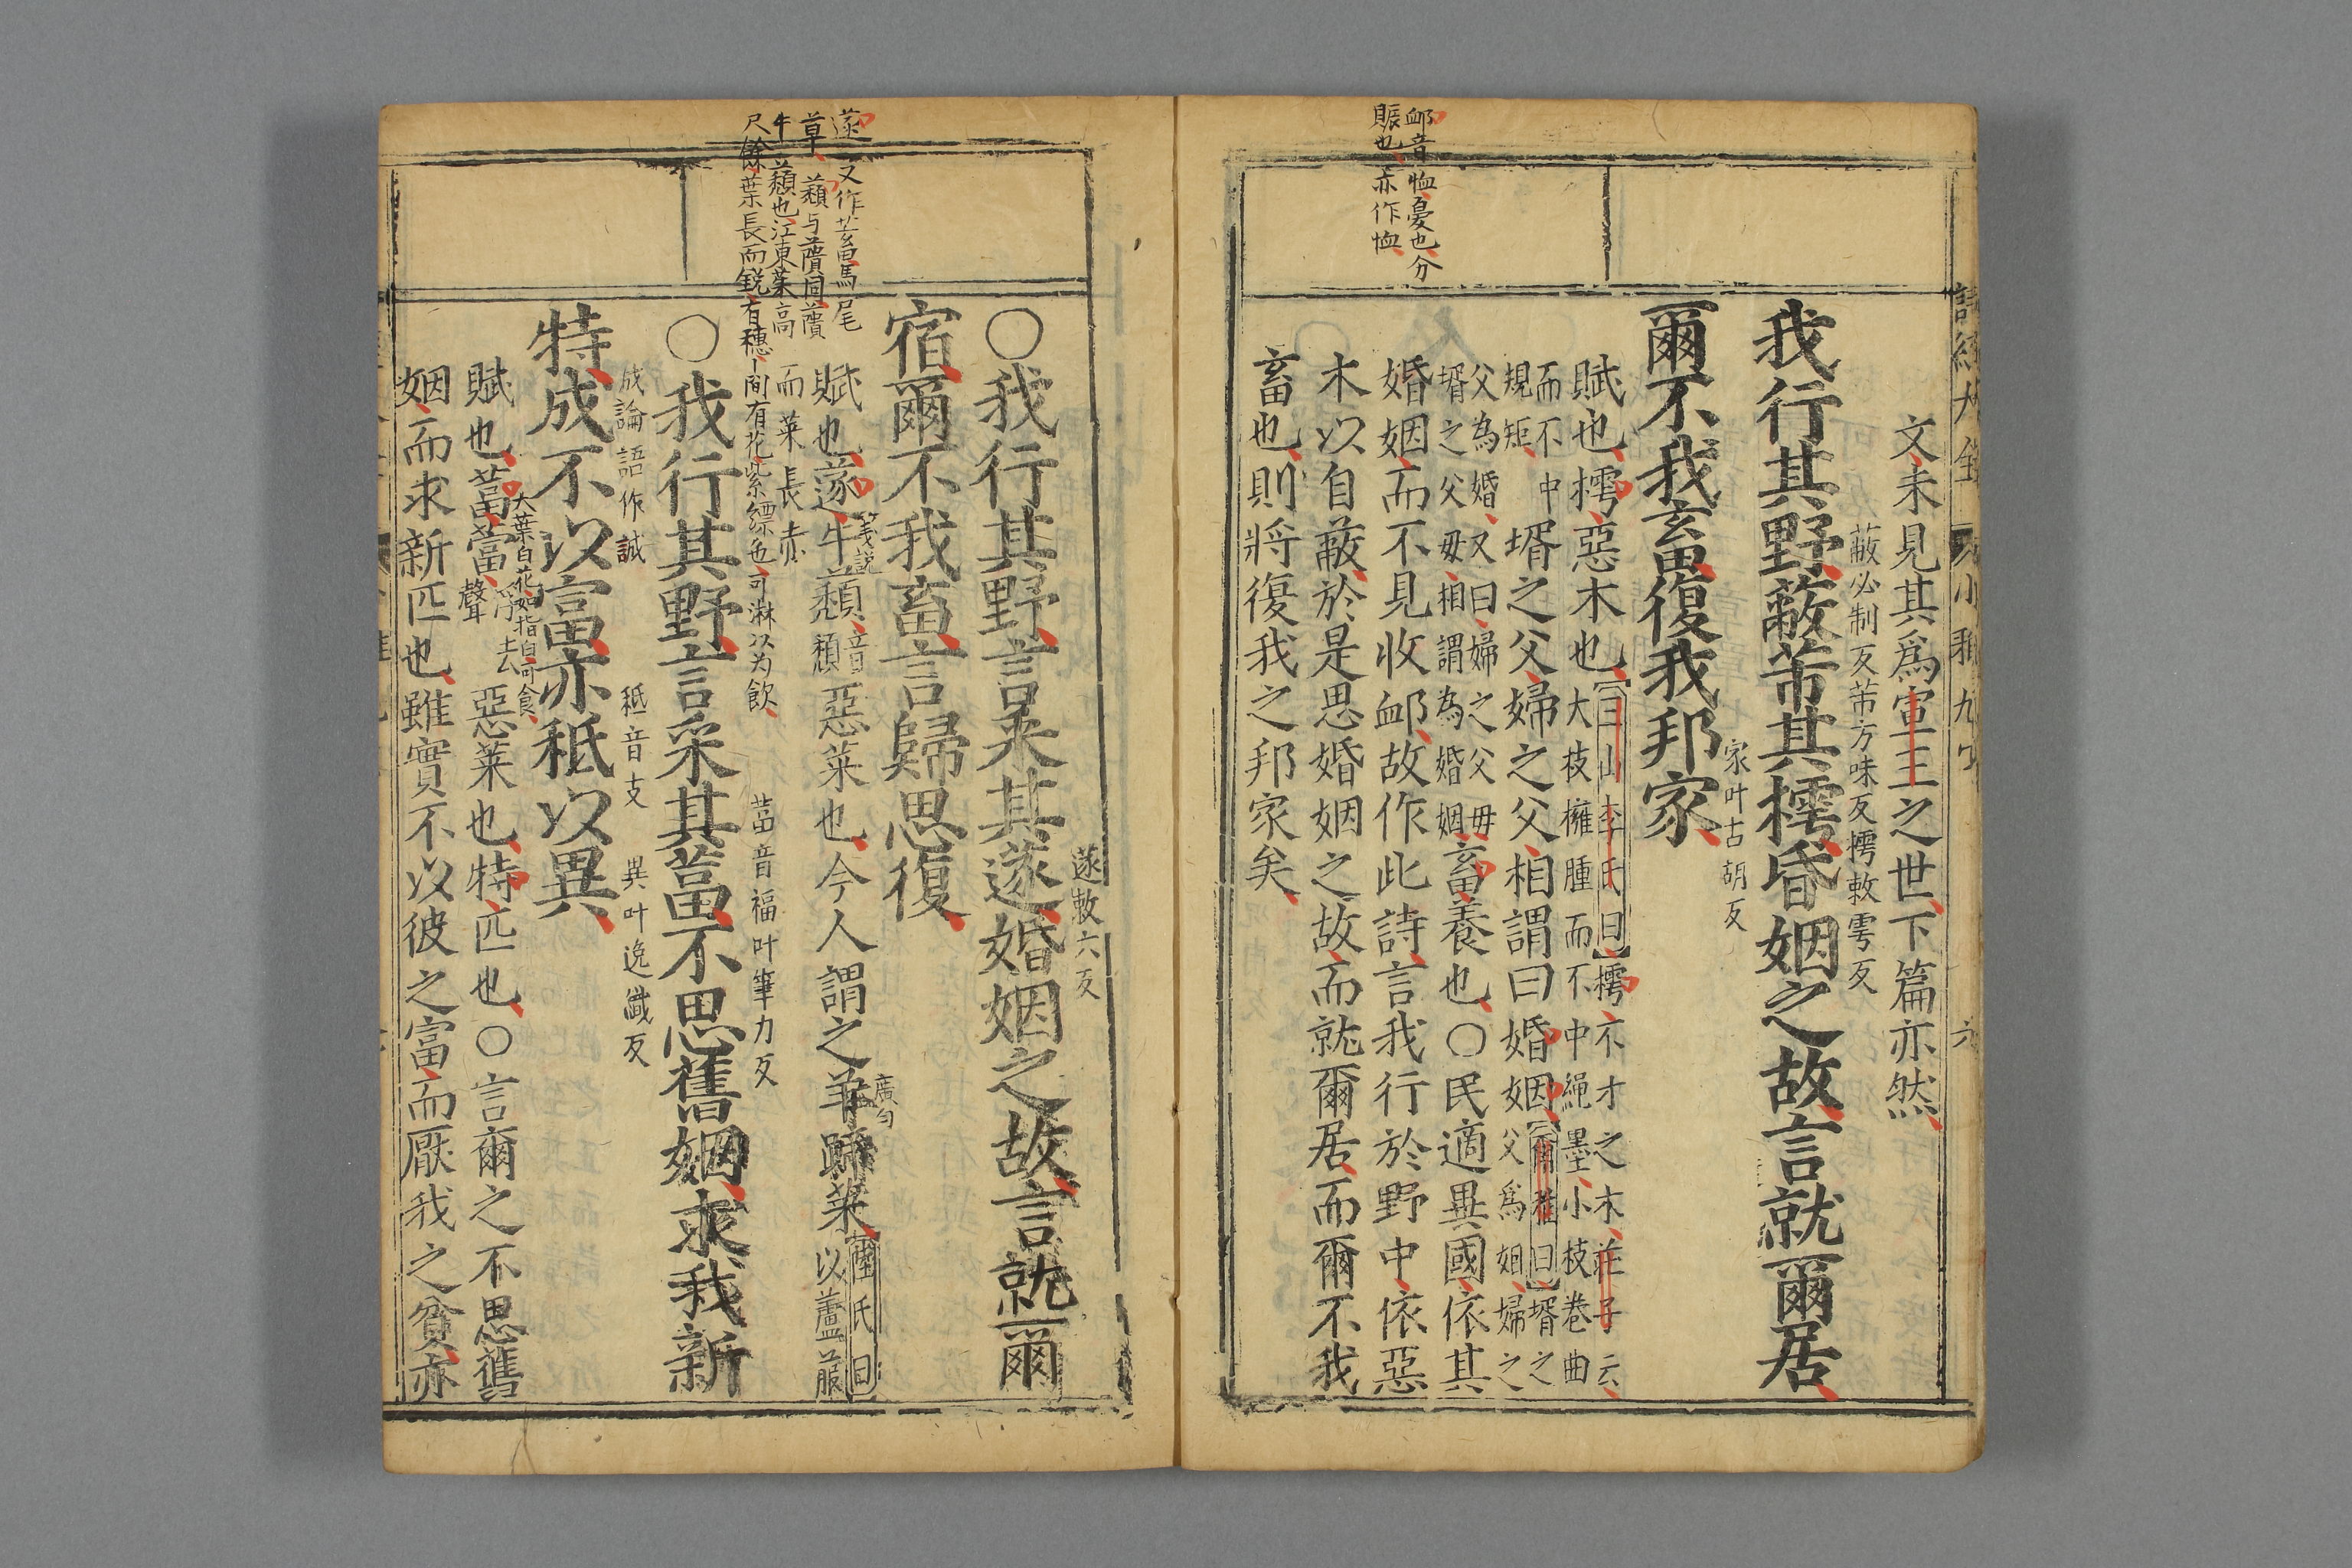 詩經大全 小雅九 六
文未見其爲宣王之世下篇亦然
蔽必制反芾方味反樗敕雩反
我行其野蔽芾其樗昏姻之故言就爾居
家叶古胡反
爾不我畜復我邦家
賦也樗惡木也
三山李氏曰樗不才之木莊子云
大枝擁腫而不中繩墨小枝卷曲
而不中
規矩
壻之父婦之父相謂曰婚姻
爾雅曰壻之
父爲姻婦之
父為婚又曰婦之父母
壻之父母相謂為婚姻
畜養也○民適異國依其
婚姻而不見收卹故作此詩言我行於野中依惡
木以自蔽於是思婚姻之故而就爾居而爾不我
畜也則將復我之邦家矣
卹音恤憂也分
賑也亦作恤
蓫敕六反
○我行其野言采其蓫婚姻之故言就爾
宿爾不我畜言歸思復
賦也蓫牛蘈
音
蘈
惡菜也今人謂之羊蹄菜
陸氏曰
以蘆菔
而葉長赤
箋說
廣勻
蓫又作蓄馬尾
草蘈与藬同藬
牛蘈也江東葉高
尺餘葉長而銳有穗間有花紫縹色可淋以为飲
葍音福叶筆力反
○我行其野言采其葍不思舊姻求我新
成論語作誠 秖音支 異叶逸織反
特成不以富亦秖以異
大葉白花如指白可食
賦也葍䔰
浮去
聲
惡菜也特匹也○言爾之不思舊
姻而求新匹也雖實不以彼之富而厭我之貧亦